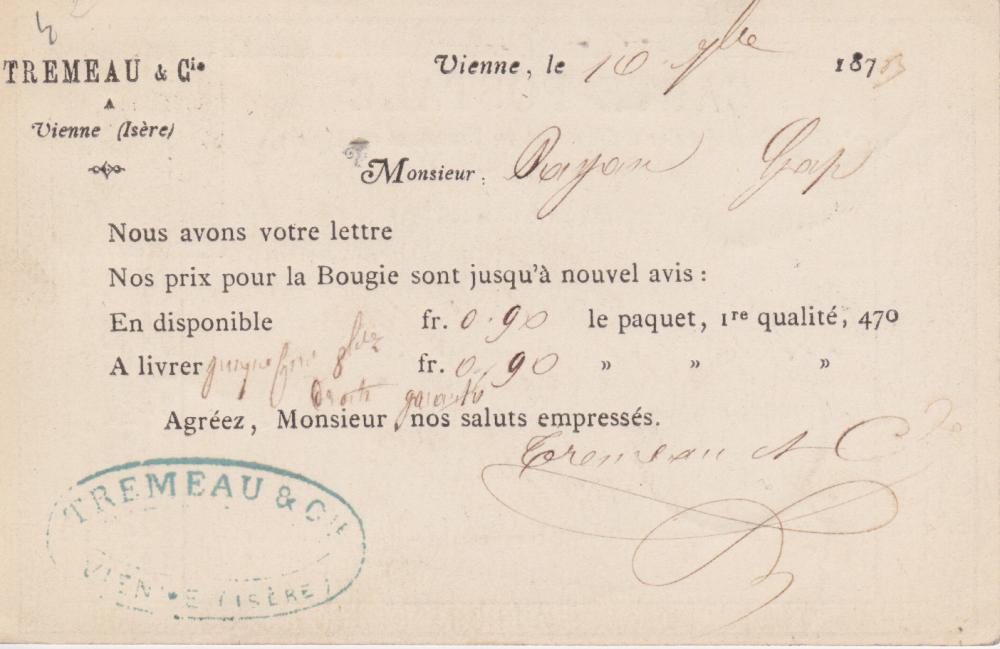 TREMEAU & Cie
A
Vienne (Isère)
Vienne, le 10 7bre 1873
Monsieur. Gap
Nous avons votre lettre
Nos prix pour la Bougie sont jusqu'à nouvel avis :
En disponible fr. 0.90 le paquet, 1re qualité, 470
A livrer jusqu'a fin 8bre fr. 0,90 » » »
droits garantis
Agréez, Monsieur, nos saluts empressés.
Tremeau et Cie
TREMEAU & Cie
VIENNE (ISÈRE)